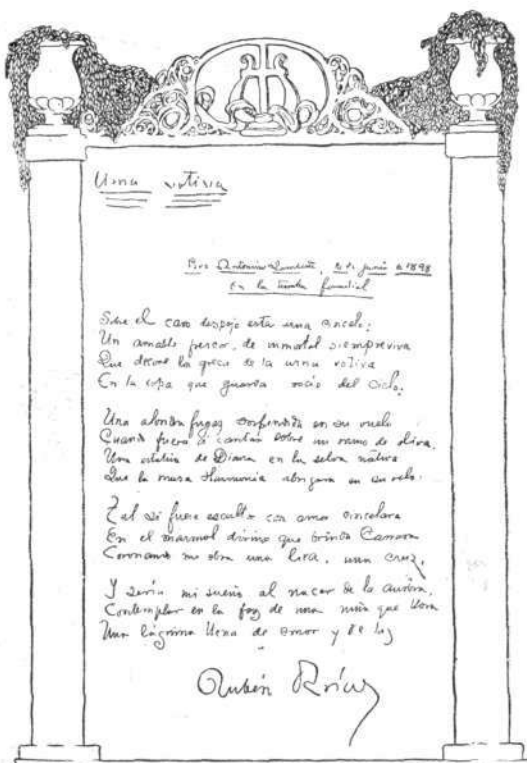 Urna votiva
Por Antonino Lamberti, de junio de 1898
en la tumba familial
Sobre el caro despojo esta urna cincelo:
Un amable frescor de inmortal siempreviva
Que decore la greca de la urna votiva
En la copa que guarda rocío del cielo;
Una alondra fugaz sorprendida en su vuelo
Cuando fuera á cantar sobre un ramo de oliva,
Una estatua de Diana en la selva nativa
Que la musa Harmonia abrigara en su velo.
Tal si fuera escultor con amor cincelara
En el marmol divino que brinda Carrara
Coronando mi obra una lira, una cruz,
Y sería mi sueño al nacer de la aurora,
Contemplar en la faz de una niña que llora
Una lágrima llena de amor y de luz
Rubén Darío